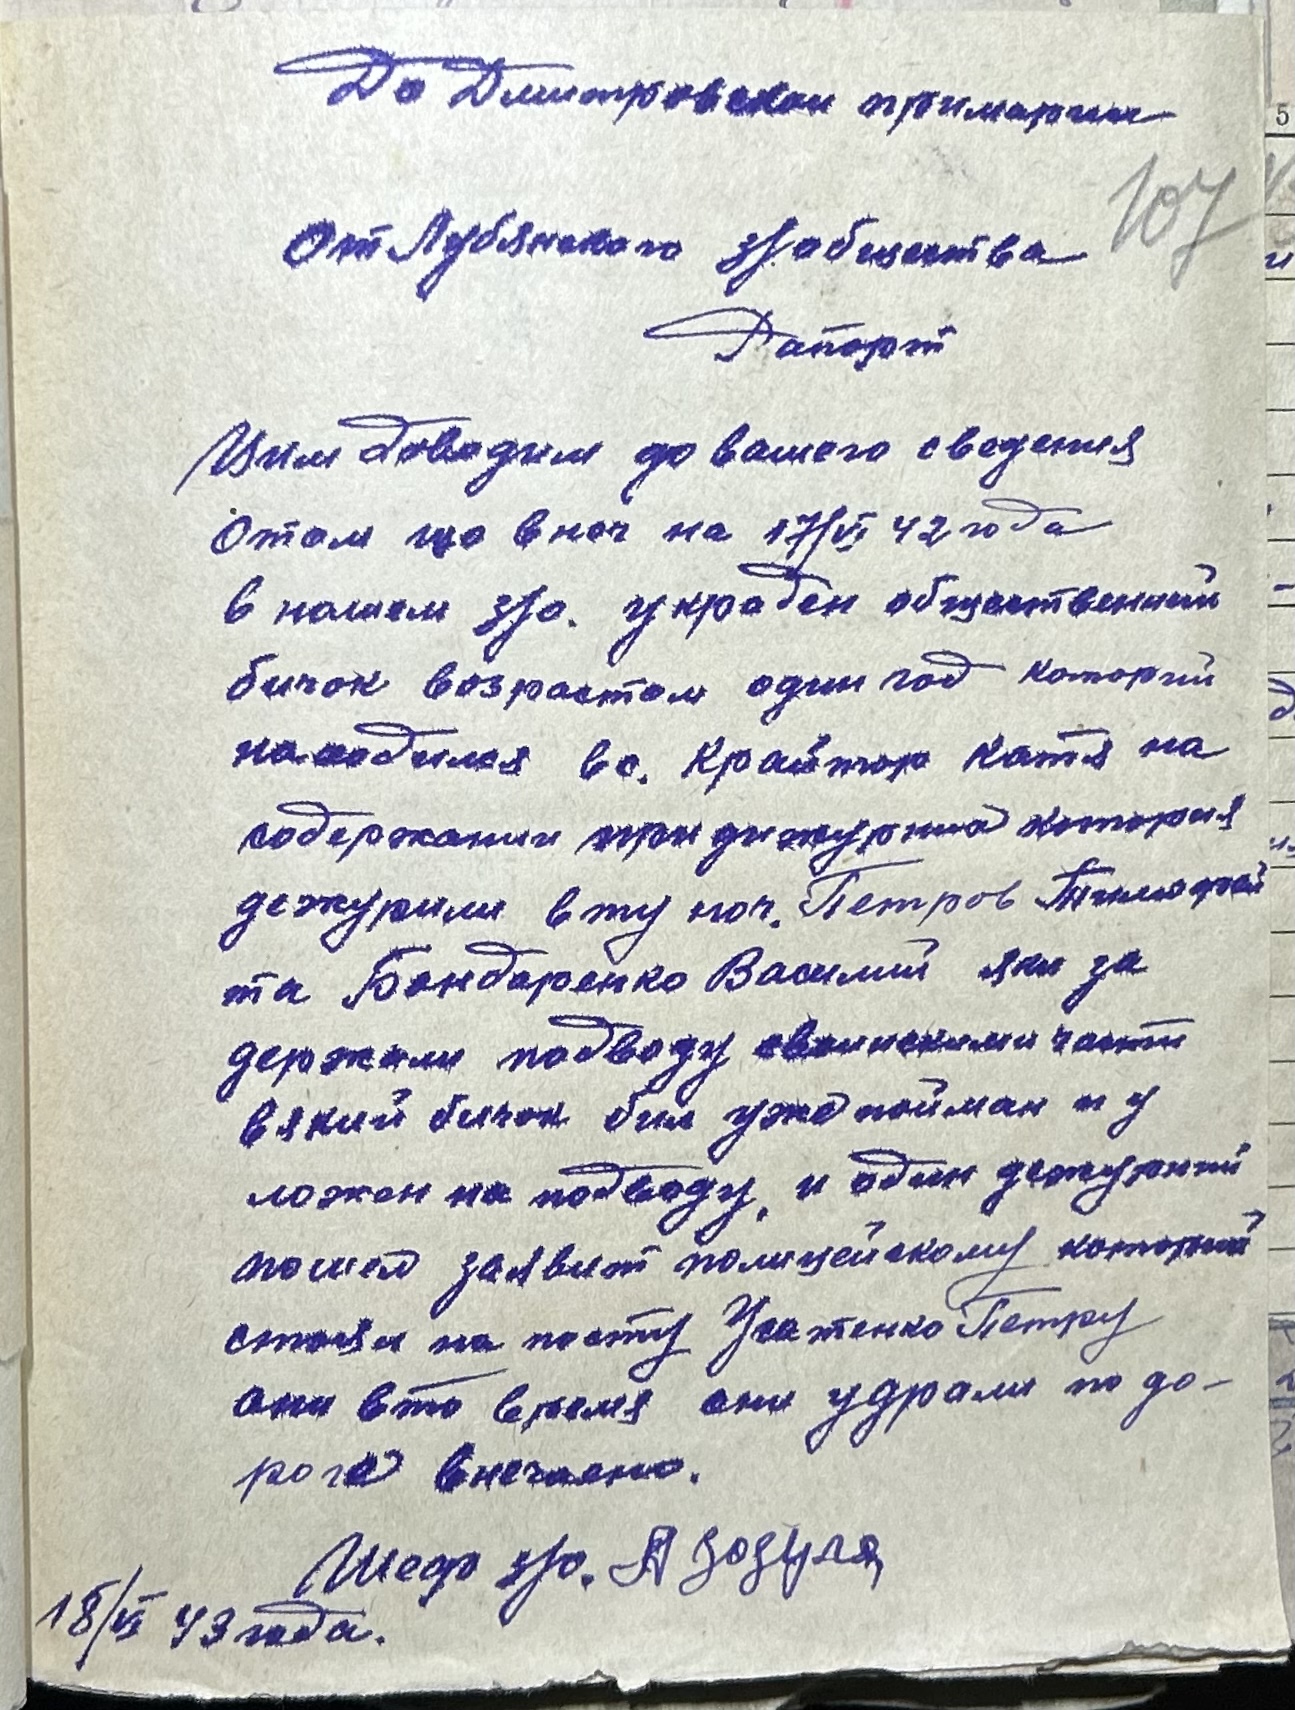 До Дмитровской примарии
107
От Лубянского з/общества
Рапорт
Цим доводим до вашего сведения
отом що вноч на 17/VI 42 года
в нашем з/о. украден общественний
бичок возростом один год которий
находился в с. Крайтор Катя на
содержании при дижурний котория
дежурили вту ноч. Петров Тимофей
та Бондаренко Василий яки за
держали подводу своинскими част
вякий бичок бил уже пойман и у
ложен на подводу, и один дежурний
пошел заявит полицейскому которий
стоял на посту Усатенко Петру
они вто время они удрали по до-
роге внечаено.
Шеф з/о. А Зозуля
18/VI 43 года.